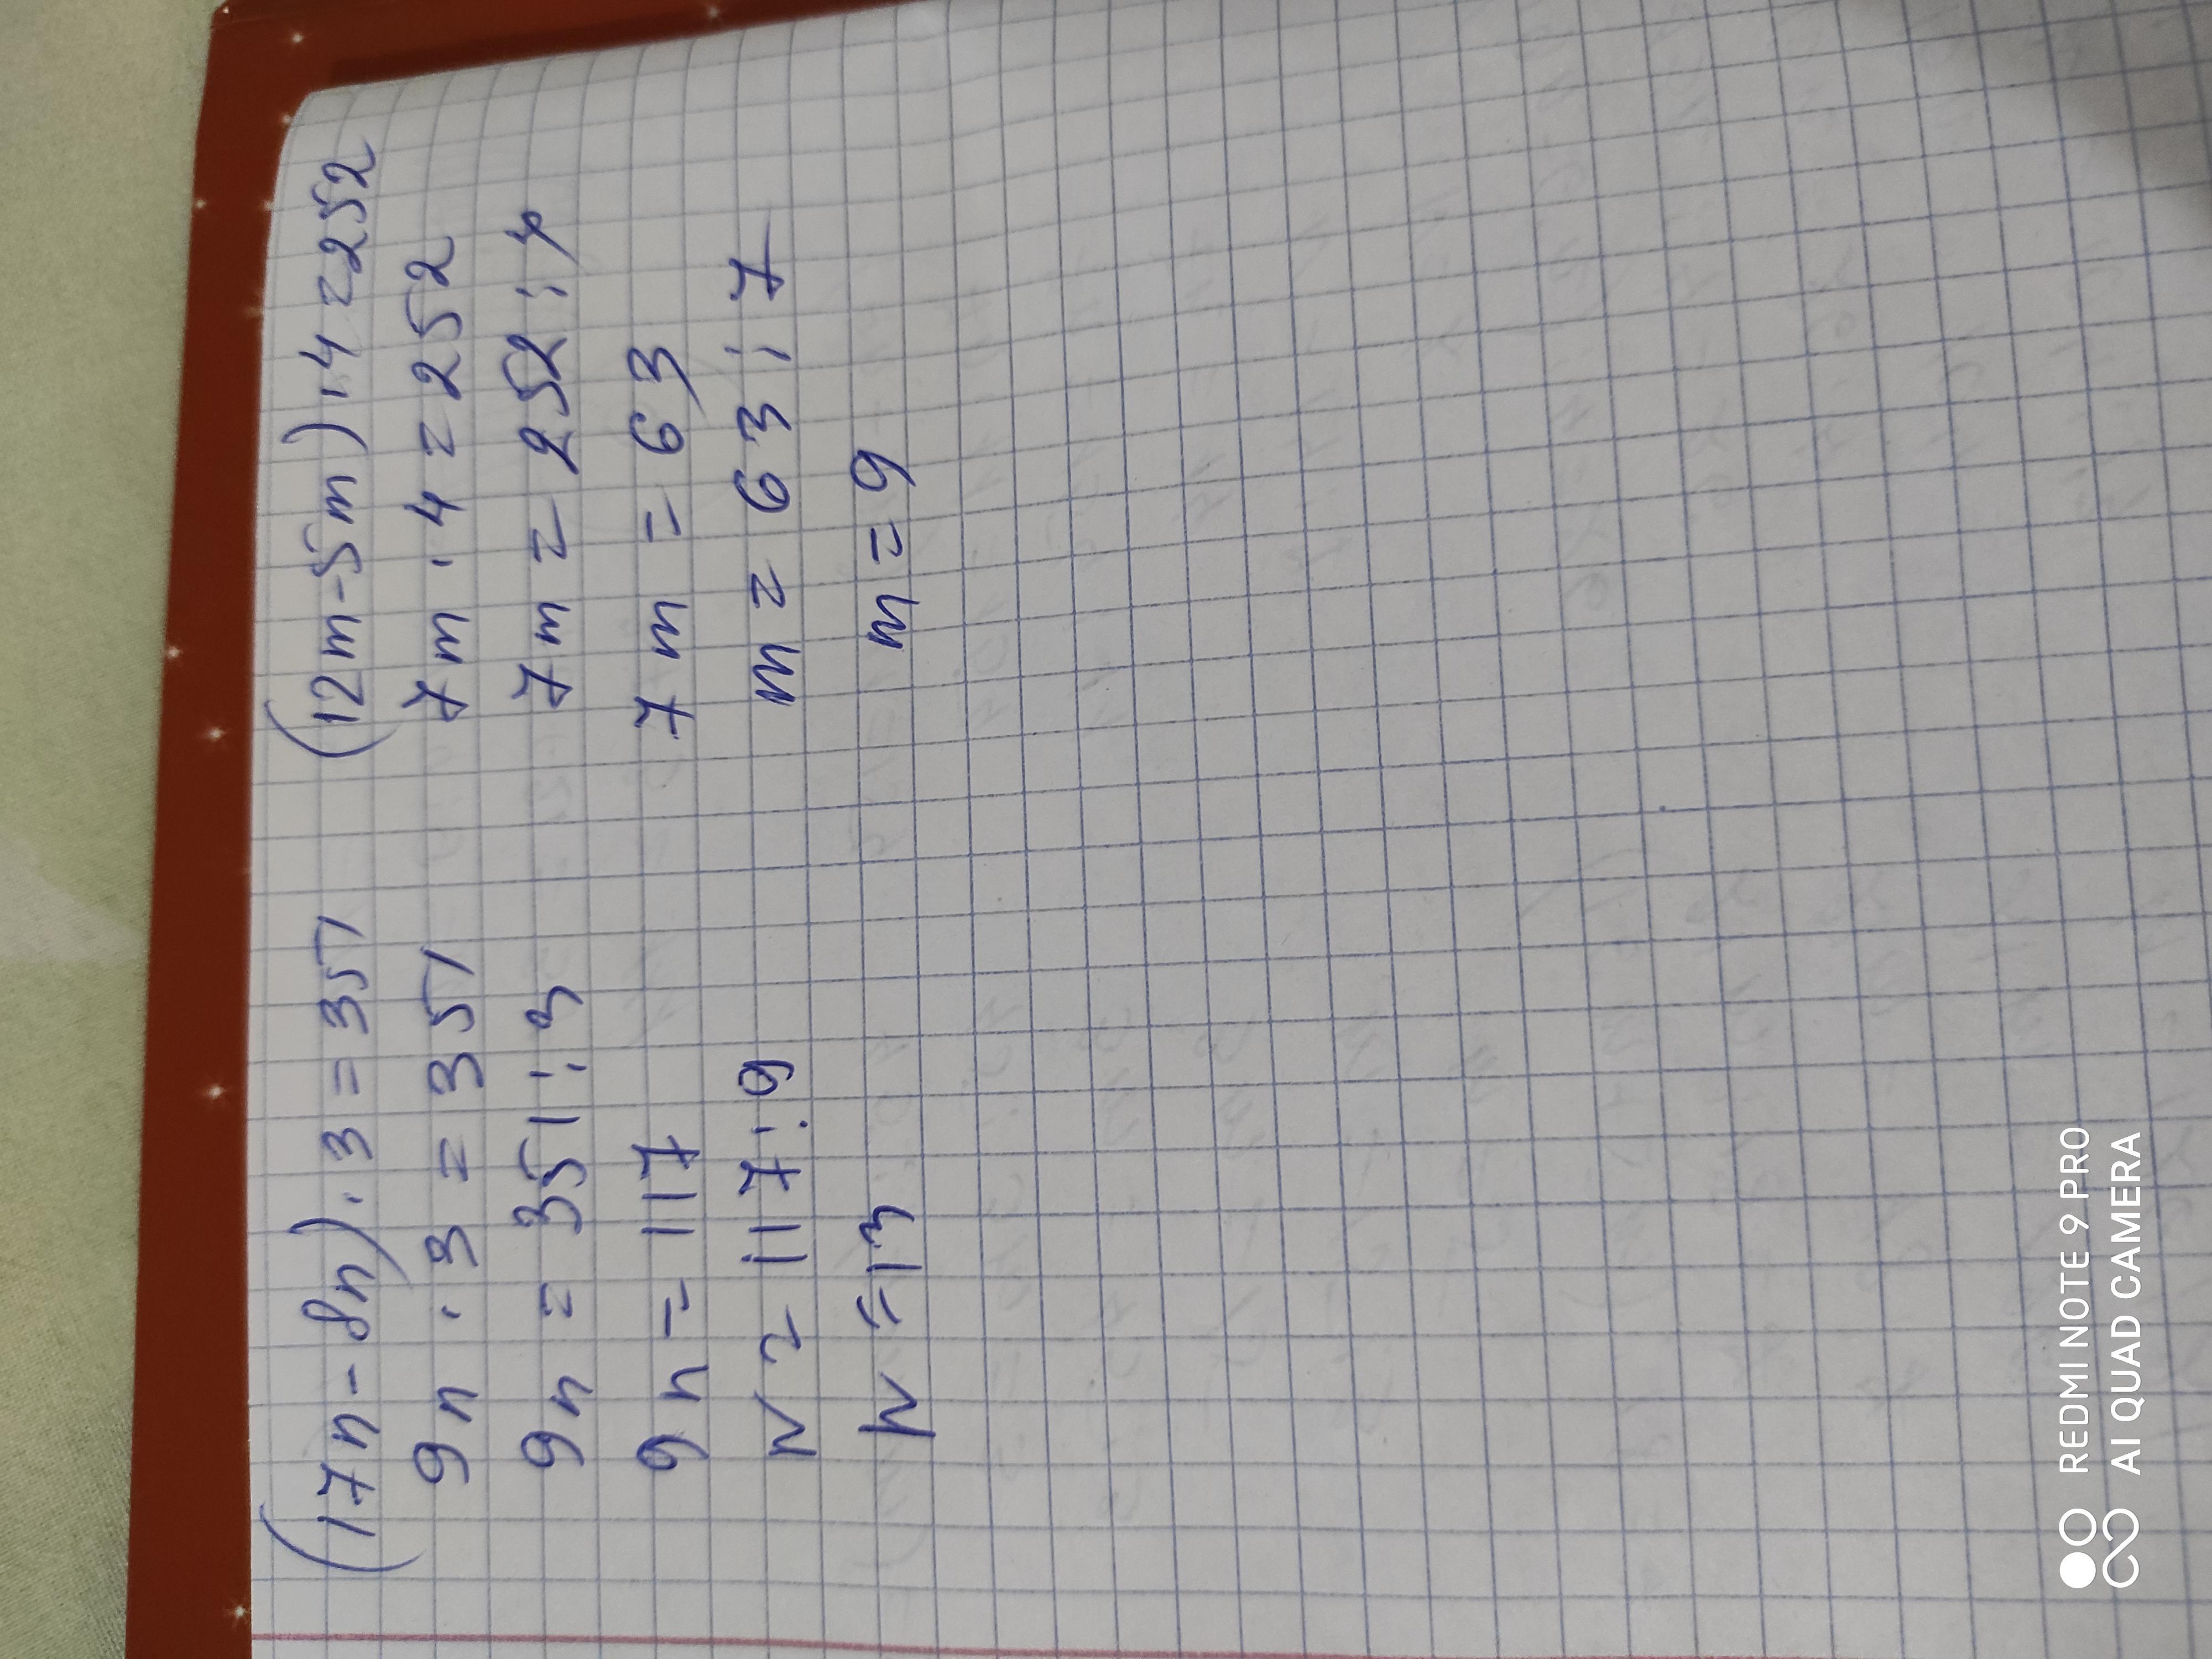 (17n - 8n) · 3 = 351
9n · 3 = 351
9n = 351 : 3
9n = 117
n = 117 : 9
n = 13
(12m - 5m) · 4 = 252
7m · 4 = 252
7m = 252 : 4
7m = 63
m = 63 : 7
m = 9
REDMI NOTE 9 PRO
AI QUAD CAMERA